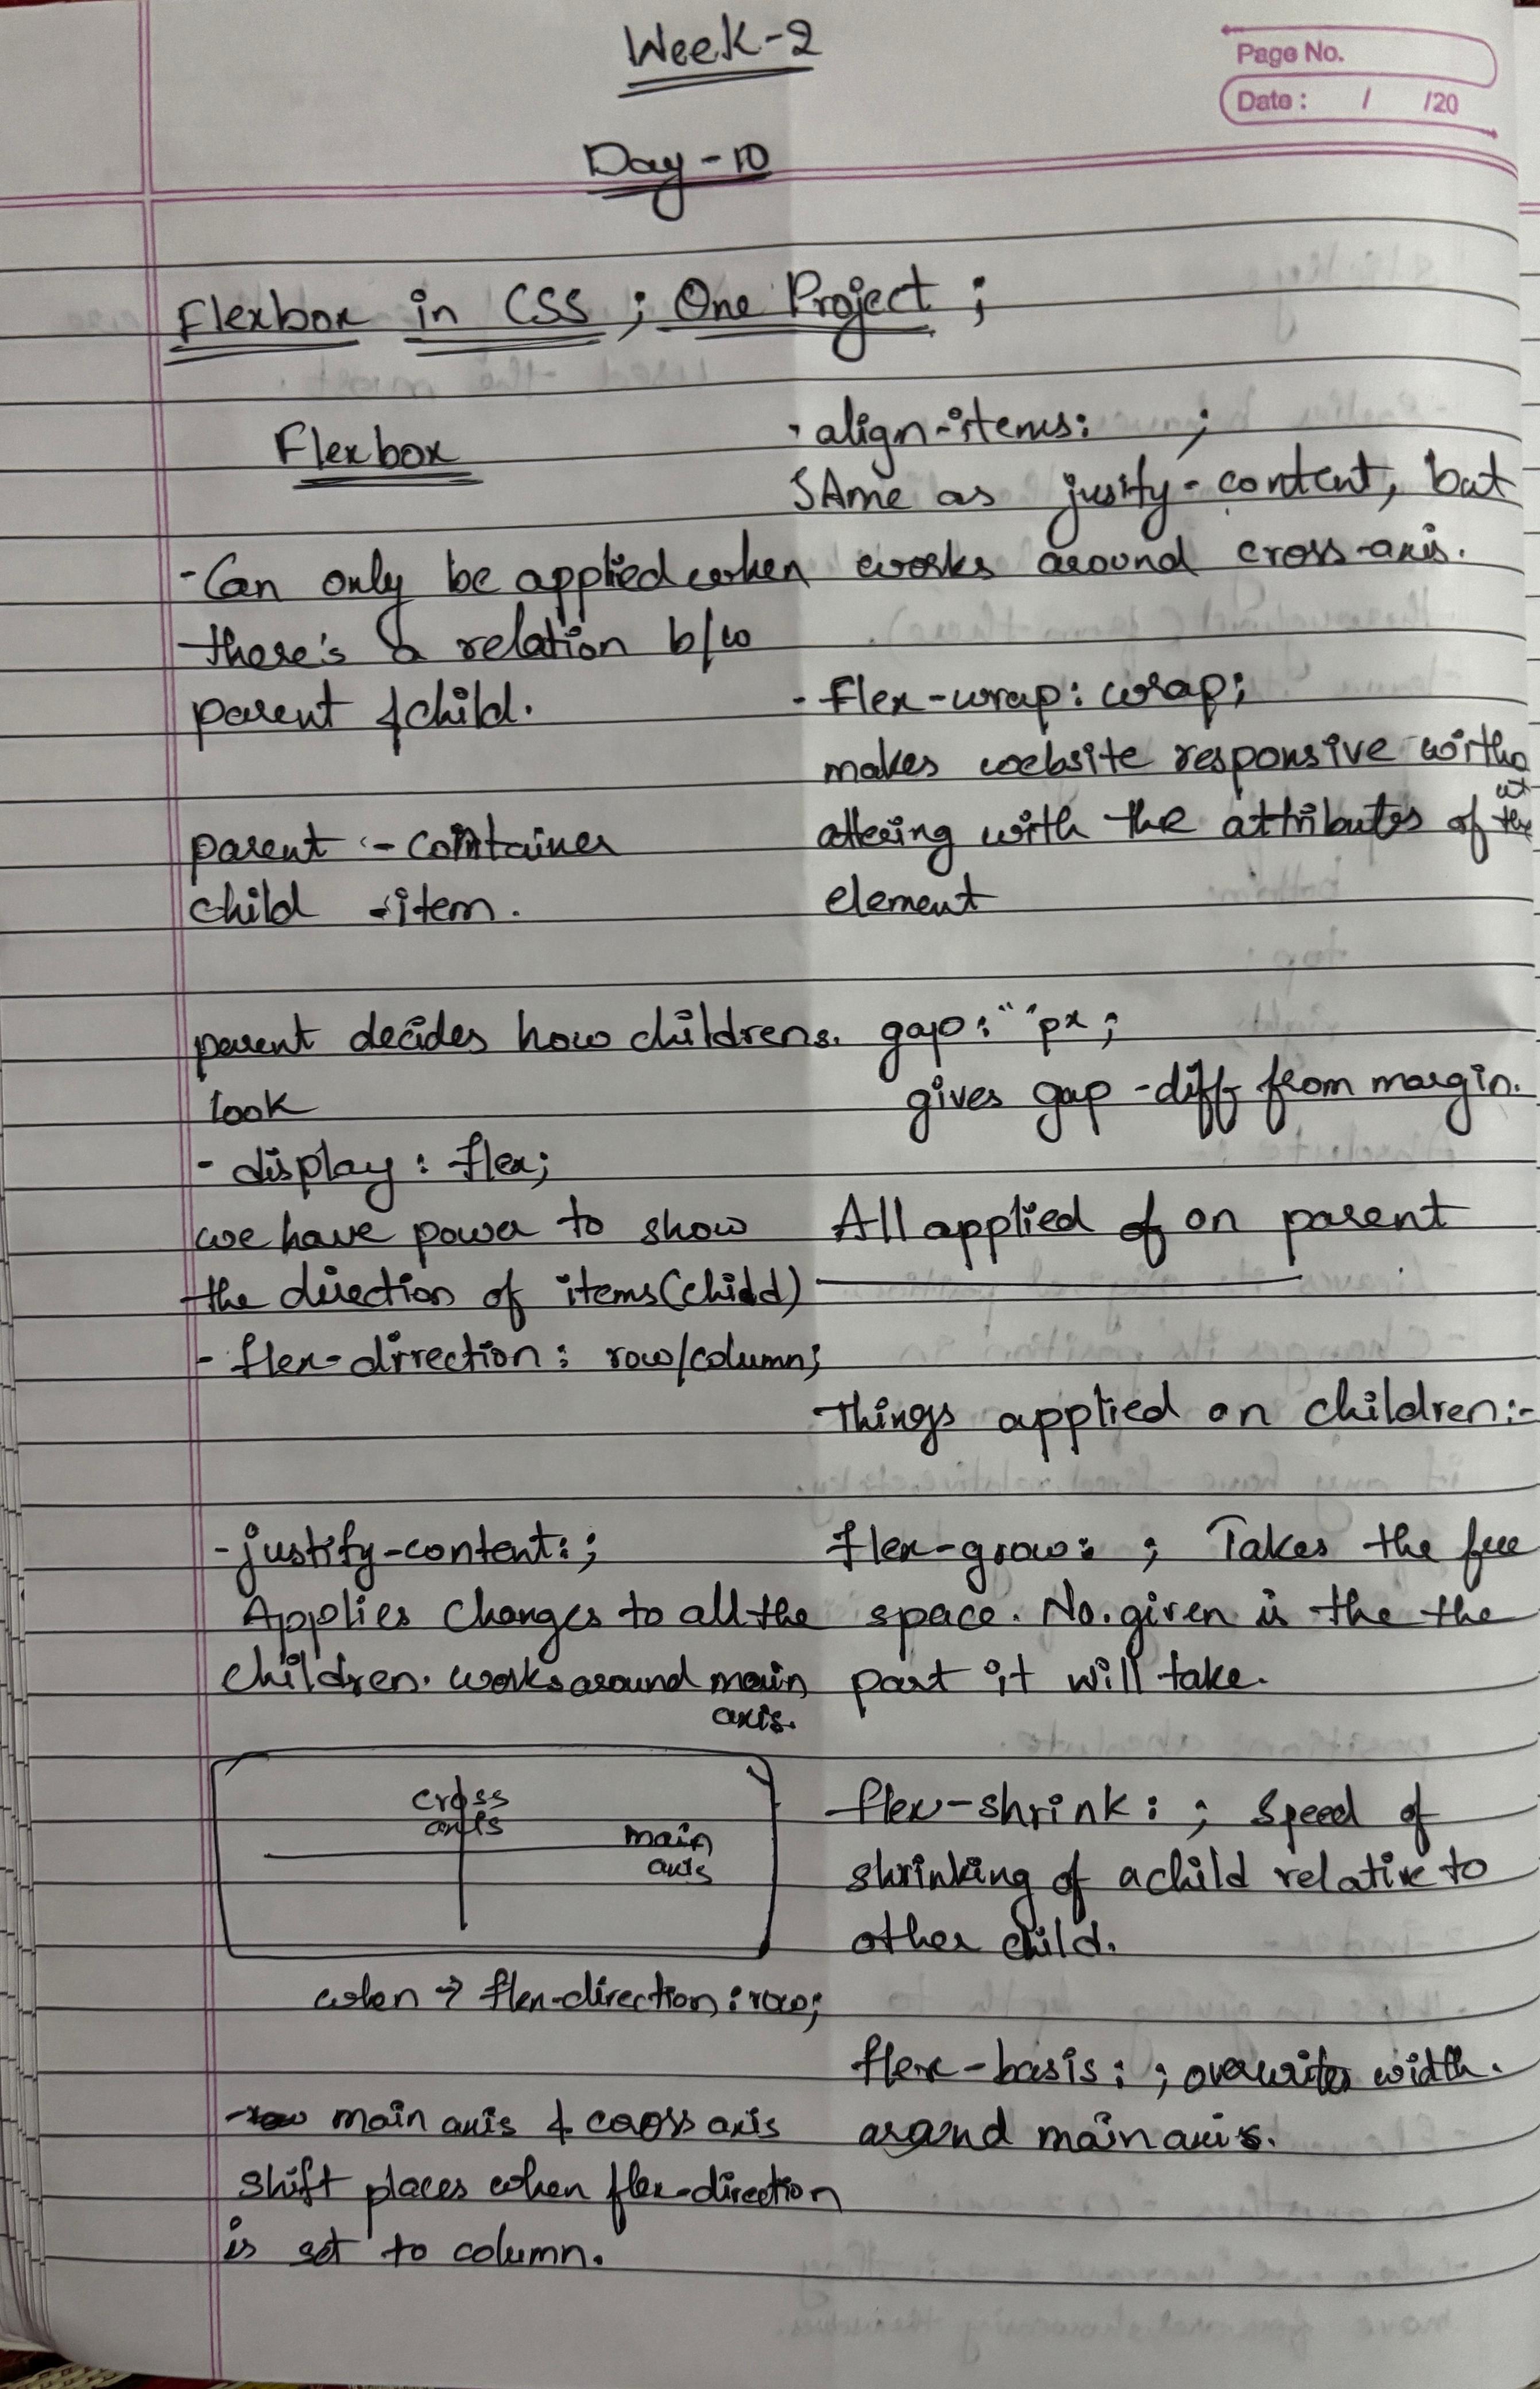 Week-2
Page No.
Date : / /20
Day-10
Flexbox in CSS ; One Project ;
Flexbox
- Can only be applied when
there's a relation b/w
parent & child.
parent :- container
child - item.
parent decides how childrens.
look
- display : flex;
we have power to show
the direction of items (child)
- flex-direction : row/column;
- justify-content: ;
Applies changes to all the
children. works around main
axis.
cross
axis
main
axis
when → flex-direction : row;
main axis & cross axis
shift places when flex-direction
is set to column.
- align-items: ;
SAme as justify-content, but
works around cross-axis.
- flex-wrap: wrap;
makes website responsive witho
ut
altering with the attributes of the
element
gap: " " px ;
gives gap - diff from margin.
All applied of on parent
Things applied on children:-
flex-grow: ; Takes the free
space. No. given is the the
part it will take.
flex-shrink: ; speed of
shrinking of a child relative to
other child.
flex-basis: ; overwrites width.
around main axis.